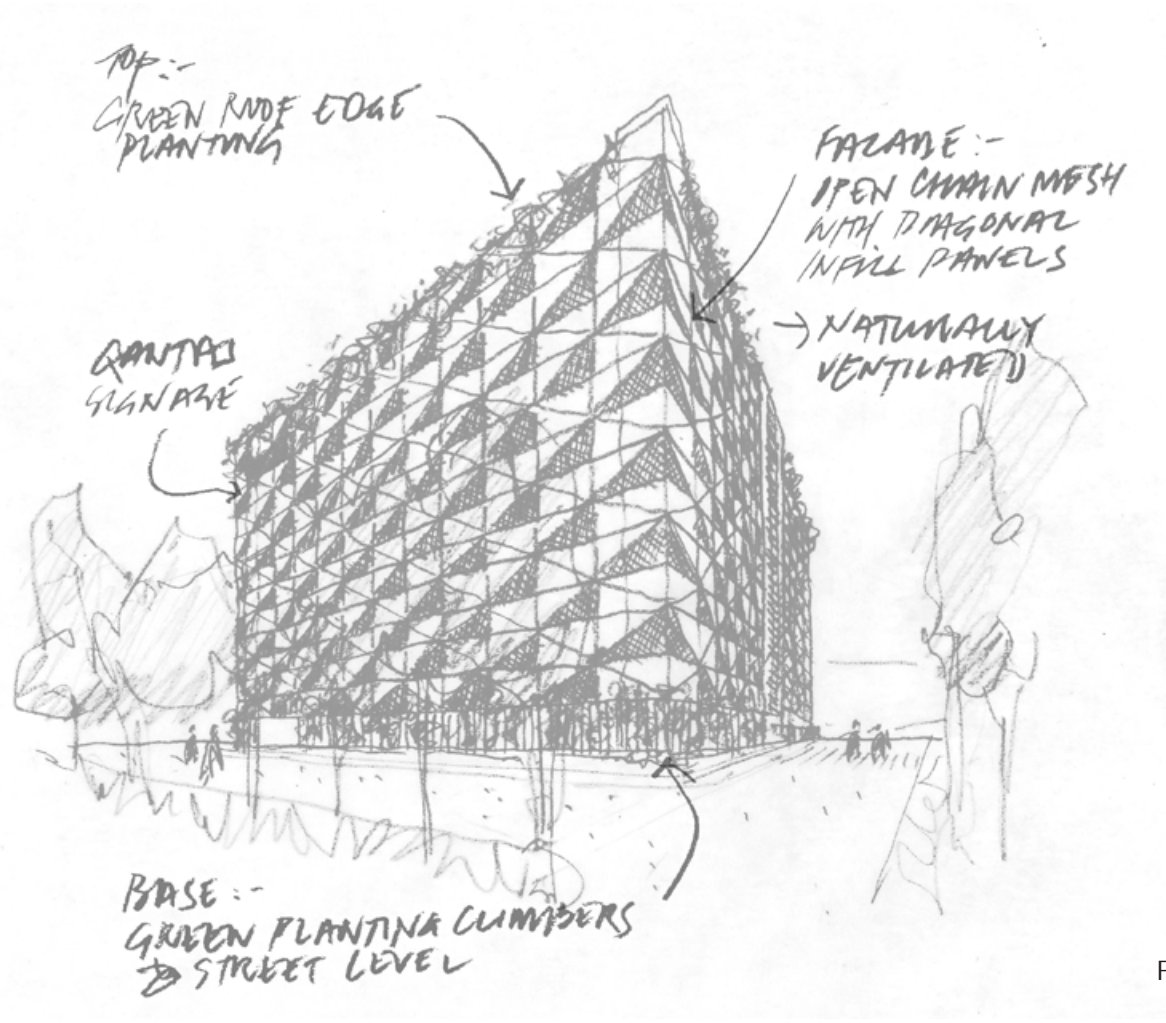 TOP:-
GREEN ROOF EDGE
PLANTING
FACADE:-
OPEN CHAIN MESH
WITH DIAGONAL
INFILL PANELS
→ NATURALLY
VENTILATED
QANTAS
SIGNAGE
BASE:-
GREEN PLANTING CLIMBERS
→ STREET LEVEL
F